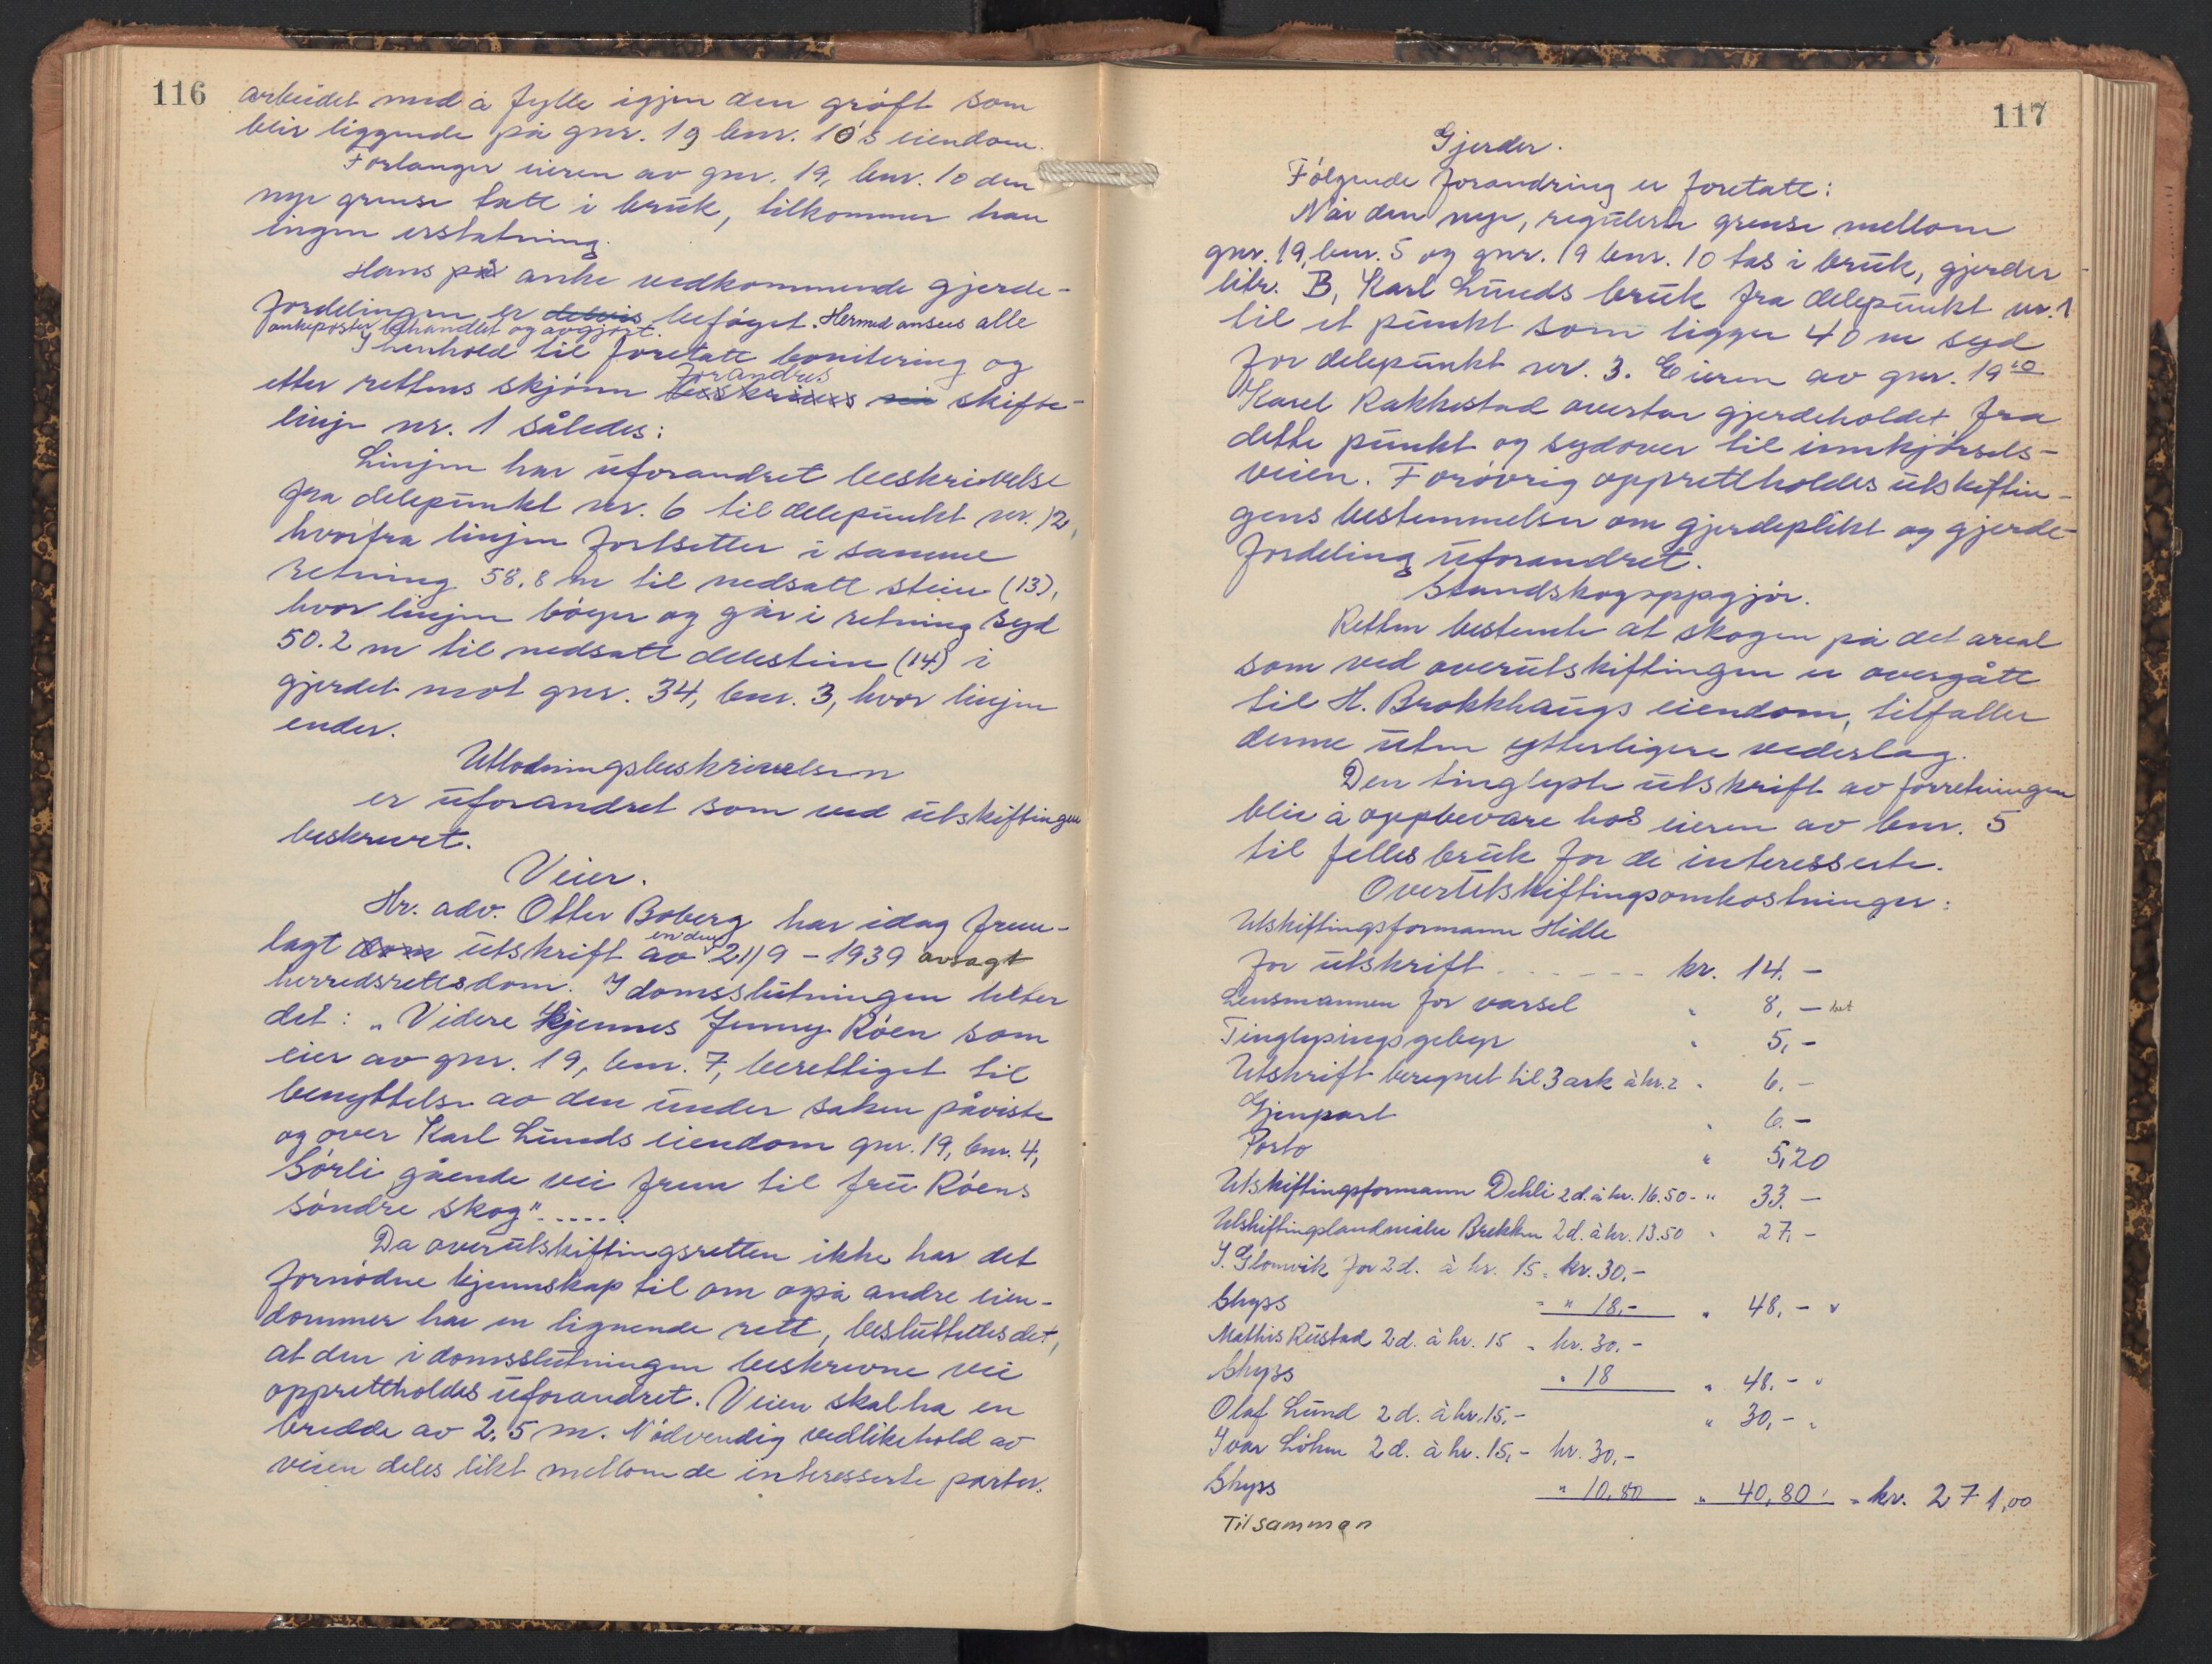 116
arbeidet med å fylle igjen den grøft som
blir liggende på gnr. 19 bnr. 10's eiendom.
Forlanger eieren av gnr. 19, bnr. 10 den
nye grense tatt i bruk, tilkommer han
ingen erstatning.
Hans på anke vedkommende gjerde-
fordelingen er delvis beføyet. Hermed ansees alle
ankeposter behandlet og avgjort.
I henhold til foretatt bonitering og
forandres
etter rettens skjønn beskrives skifte-
linje nr. 1 således:
Linjen har uforandret beskrivelse
fra delepunkt nr. 6 til delepunkt nr. 12,
hvorfra linjen fortsetter i samme
retning 58.8 m til nedsatt stein (13),
hvor linjen bøyer og går i retning syd
50.2 m til nedsatt delestein (14) i
gjerdet mot gnr. 34, bnr. 3, hvor linjen
ender.
Utlodningsbeskrivelsen
er uforandret som ved utskiftingen
beskrevet.
Veier.
Hr. adv. Otter Boberg har idag frem-
en den
lagt dom utskrift av 21/9 - 1939 avsagt
herredsrettsdom. I domsslutningen heter
det: "Videre kjennes Jenny Røen som
eier av gnr. 19, bnr. 7, berettiget til
benyttelse av den under saken påviste
og over Karl Lunds eiendom gnr. 19, bnr. 4,
Sørli gående vei frem til fru Røens
søndre skog".....
Da overutskiftingsretten ikke har det
fornødne kjennskap til om også andre eien-
dommer har en lignende rett, besluttedes det,
at den i domsslutningen beskrevne vei
opprettholdes uforandret. Veien skal ha en
bredde av 2.5 m. Nødvendig vedlikehold av
veien deles likt mellom de interesserte parter.
117
Gjerder.
Følgende forandring er foretatt:
Når den nye, regulerte grense mellom
gnr. 19, bnr. 5 og gnr. 19 bnr. 10 tas i bruk, gjerder
litr. B, Karl Lunds bruk fra delepunkt nr. 1
til et punkt som ligger 40 m syd
for delepunkt nr. 3. Eieren av gnr. 19 10
Karel Rakkestad overtar gjerdeholdet fra
dette punkt og sydover til innkjørsels-
veien. Forøvrig opprettholdes utskiftin-
gens bestemmelser om gjerdeplikt og gjerde-
fordeling uforandret.
Standskogsoppgjør.
Retten bestemte at skogen på det areal
som ved overutskiftingen er overgått
til H. Brokkhaugs eiendom, tilfaller
denne uten ytterligere vederlag.
Den tinglyste utskrift av forretningen
blir å oppbevare hos eieren av bnr. 5
til felles bruk for de interesserte.
Overutskiftingsomkostninger:
Utskiftingsformann Hidle
for utskrift . . . . kr. 14.-
Lensmannen for varsel " 8,-
Tinglysingsgebyr " 5,-
Utskrift beregnet til 3 ark à kr. 2 " 6.-
Gjenpart " 6.-
Porto " 5,20
Utskiftingsformann Dehli 2 d. à kr. 16.50 - " 33.-
Utskiftingslandmåler Brekken 2 d. à kr. 13.50 " 27,-
I. Glomvik for 2 d. à kr. 15 = kr. 30.-
Skyss = " 18,- " 48,-
Mathis Rustad 2 d. à kr. 15 = kr. 30.-
Skyss " 18 " 48.-
Olaf Lund 2 d. à kr. 15.- " 30,-
Ivar Løken 2 d. à kr. 15,- kr. 30,-
Skyss " 10,80 " 40,80 = kr. 271,00
Tilsammen